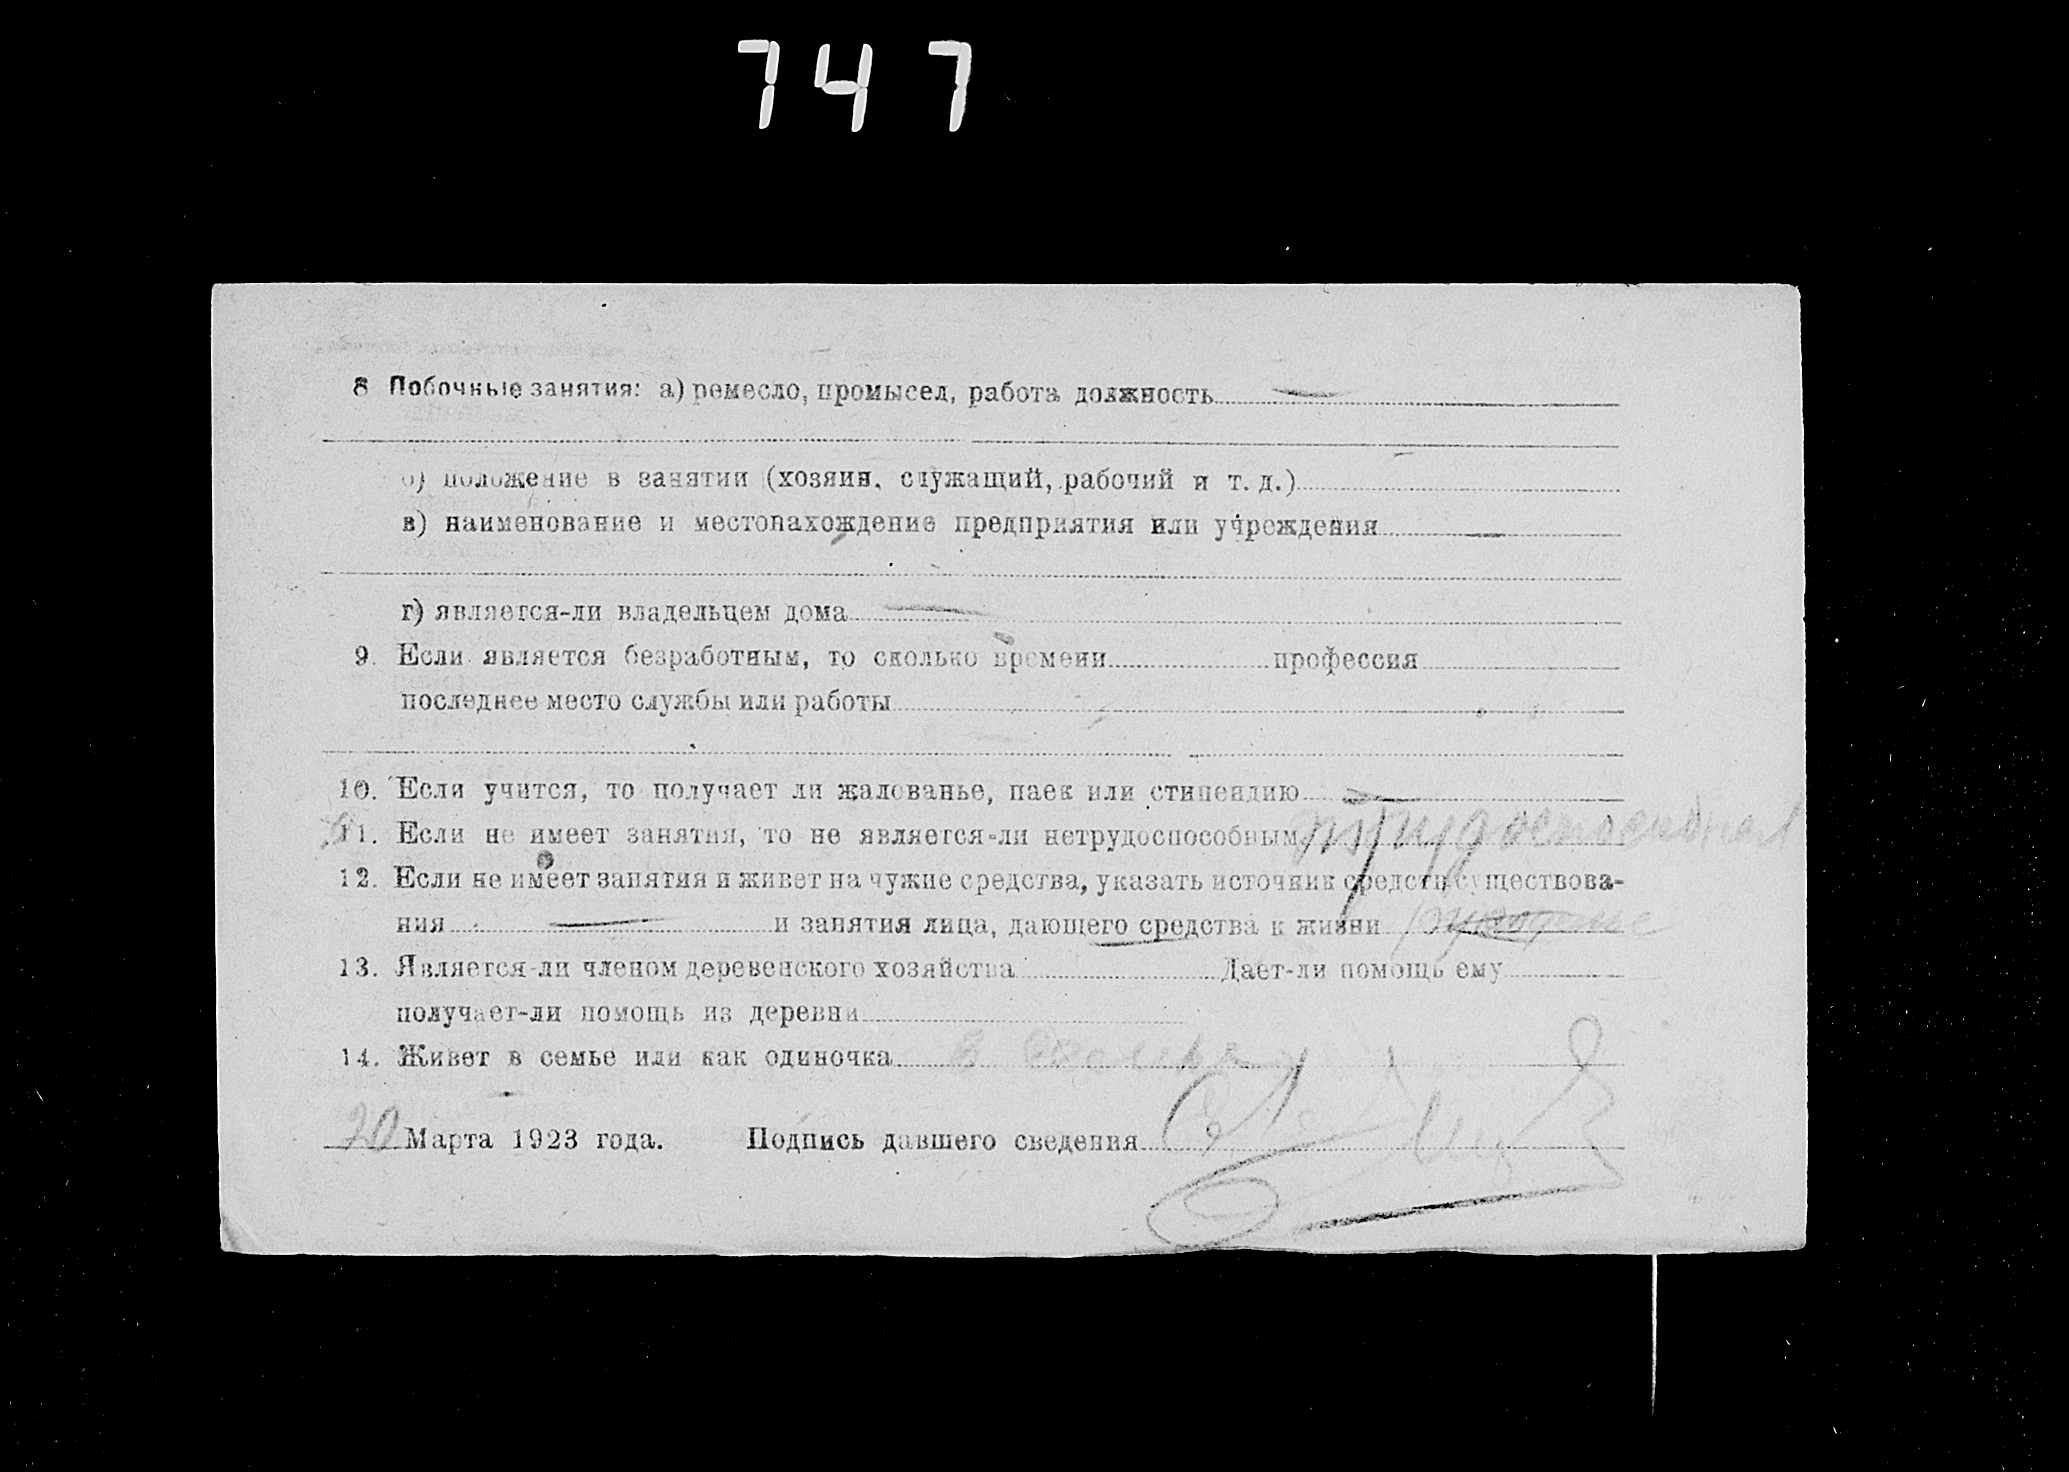 747
8 Побочные занятия: а) ремесло, промысел, работа должность —
б) положение в занятии (хозяин, служащий, рабочий и т. д.)
в) наименование и местонахождение предприятия или учреждения —
г) является-ли владельцем дома —
9. Если является безработным, то сколько времени профессия
последнее место службы или работы
10. Если учится, то получает ли жалованье, паек или стипендию —
11. Если не имеет занятия, то не является-ли нетрудоспособным
12. Если не имеет занятия и живет на чужие средства, указать источник средств существова-
ния — и занятия лица, дающего средства к жизни
13. Является-ли членом деревенского хозяйства Дает-ли помощь ему
получает-ли помощь из деревни
14. Живет в семье или как одиночка в семье
20 Марта 1923 года. Подпись давшего сведения